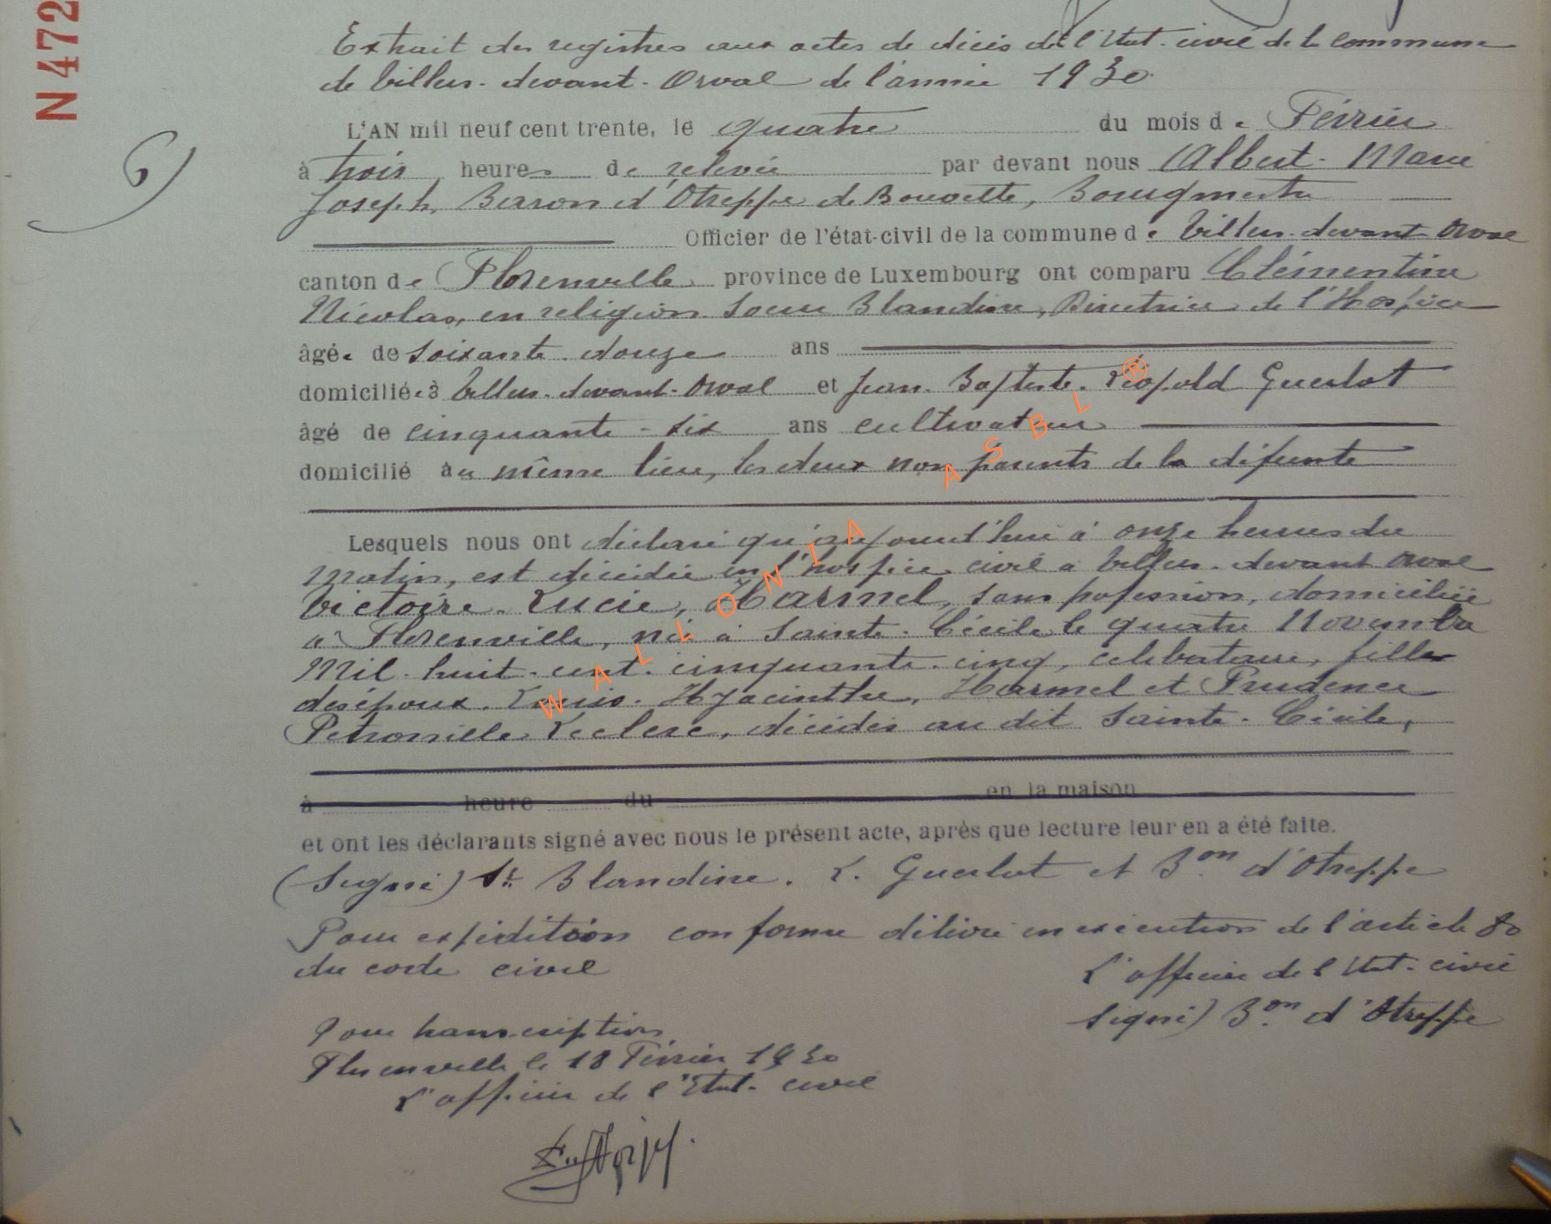 N 472
Extrait des registres aux actes de décès de l'Etat-civil de la commune
de Villers-devant-Orval de l'année 1930
6)
L'AN mil neuf cent trente, le quatre du mois de Février
à trois heures de relevée par devant nous Albert-Marie
Joseph, Baron d'Otreppe de Bouvette, Bourgmestre
Officier de l'état-civil de la commune de Villers-devant-Orval
canton de Florenville province de Luxembourg ont comparu Clémentine
Nicolas, en religion Soeur Blandine, Directrice de l'Hospice
âgée de soixante-douze ans
domiciliée à Villers-devant-Orval et Jean-Baptiste-Léopold Guerlot
âgé de cinquante-six ans cultivateur
domicilié au même lieu, les deux non parents de la défunte
Lesquels nous ont déclaré qu'aujourd'hui à onze heures du
matin, est décédée en l'hospice civil à Villers-devant Orval
Victoire-Lucie, Harmel, sans profession, domiciliée
à Florenville, né à Sainte-Cécile le quatre Novembre
Mil-huit-cent-cinquante-cinq, célibataire, fille
des époux Louis-Hyacinthe, Harmel et Prudence
Petronille Leclerc, décédés au dit Sainte-Cécile,
à heure du en la maison
et ont les déclarants signé avec nous le présent acte, après que lecture leur en a été faite.
(Signé) Sr Blandine. L. Guerlot et Bon d'Otreppe
Pour expédition conforme délivré en exécution de l'article 80
du code civil
L'officier de l'Etat-civil
Signé) Bon d'Otreppe
Pour transcription
Florenville le 18 Février 1930
L'officier de l'Etat-civil
WALLONIA ASBL ®